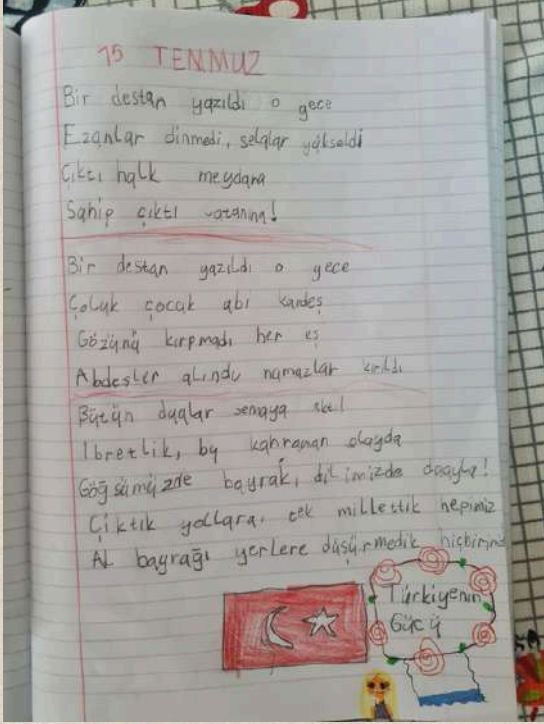 15 TEMMUZ
Bir destan yazıldı o gece
Ezanlar dinmedi, selalar yükseldi
Çıktı halk meydana
Sahip çıktı vatanına!
Bir destan yazıldı o gece
Çoluk çocuk abi kardeş
Gözünü kırpmadı her eş
Abdesler alındı namazlar kılındı
Bütün dualar semaya
Ibretlik, bu kahraman olayda
Göğsümüzde bayrak, dilimizde duayla!
Çıktık yollara, tek millettik hepimiz
Al bayrağı yerlere düşürmedik hiçbirimiz
Türkiyenin
Gücü